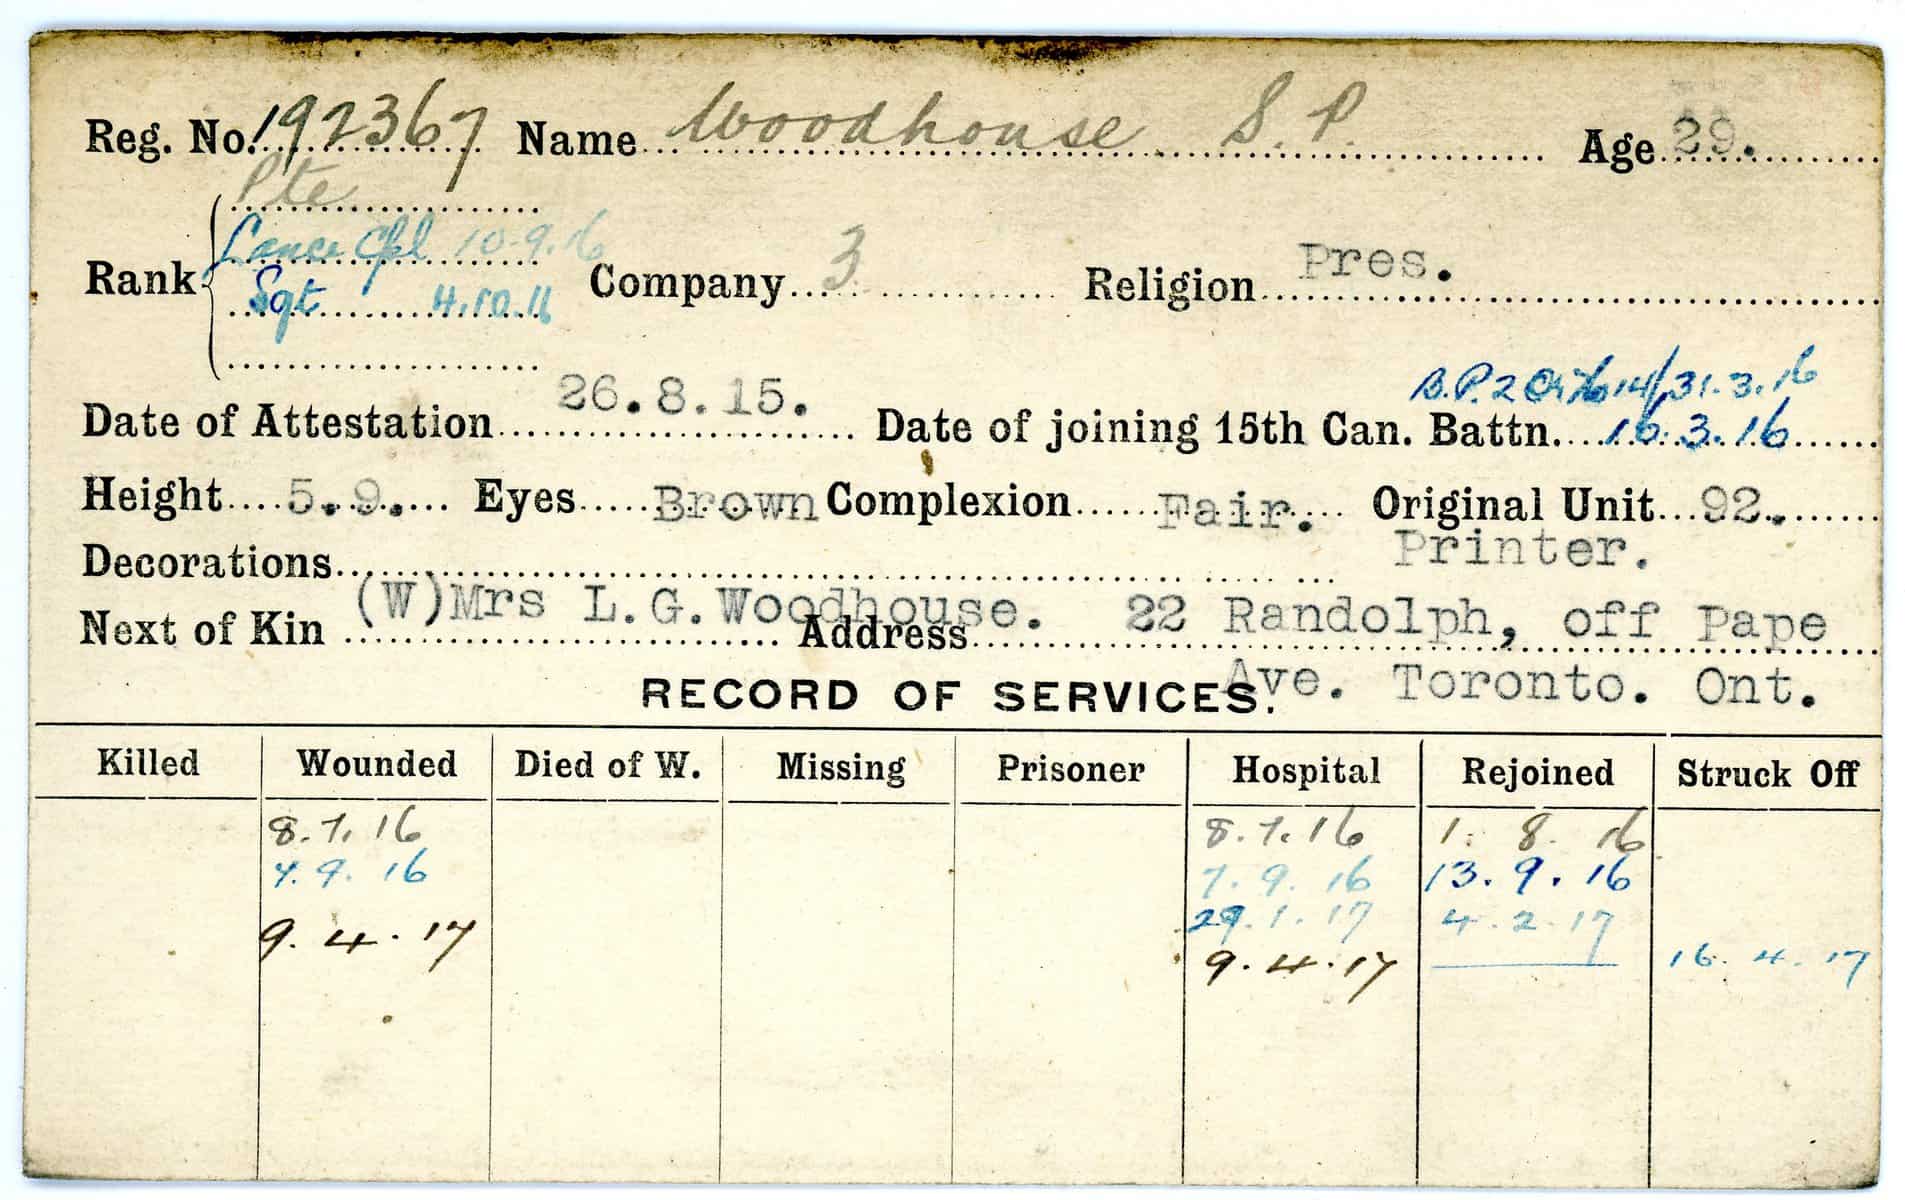 Reg. No. 192367 Name Woodhouse S. P. Age 29.
Pte
Lance Cpl 10-9.16
Rank Company 3 Religion Pres.
Sgt 4.10.16
B.P.2 14/31.3.16
Date of Attestation 26.8.15. Date of joining 15th Can. Battn. 16.3.16
Height 5.9. Eyes Brown Complexion Fair. Original Unit 92.
Decorations Printer.
Next of Kin (W)Mrs L.G.Woodhouse. Address 22 Randolph, off Pape
Ave. Toronto. Ont.
RECORD OF SERVICES.
Killed Wounded Died of W. Missing Prisoner Hospital Rejoined Struck Off
8.7.16 8.7.16 1. 8. 16
7.9.16 7.9.16 13.9.16
29.1.17 4.2.17
9.4.17 9.4.17 16.4.17